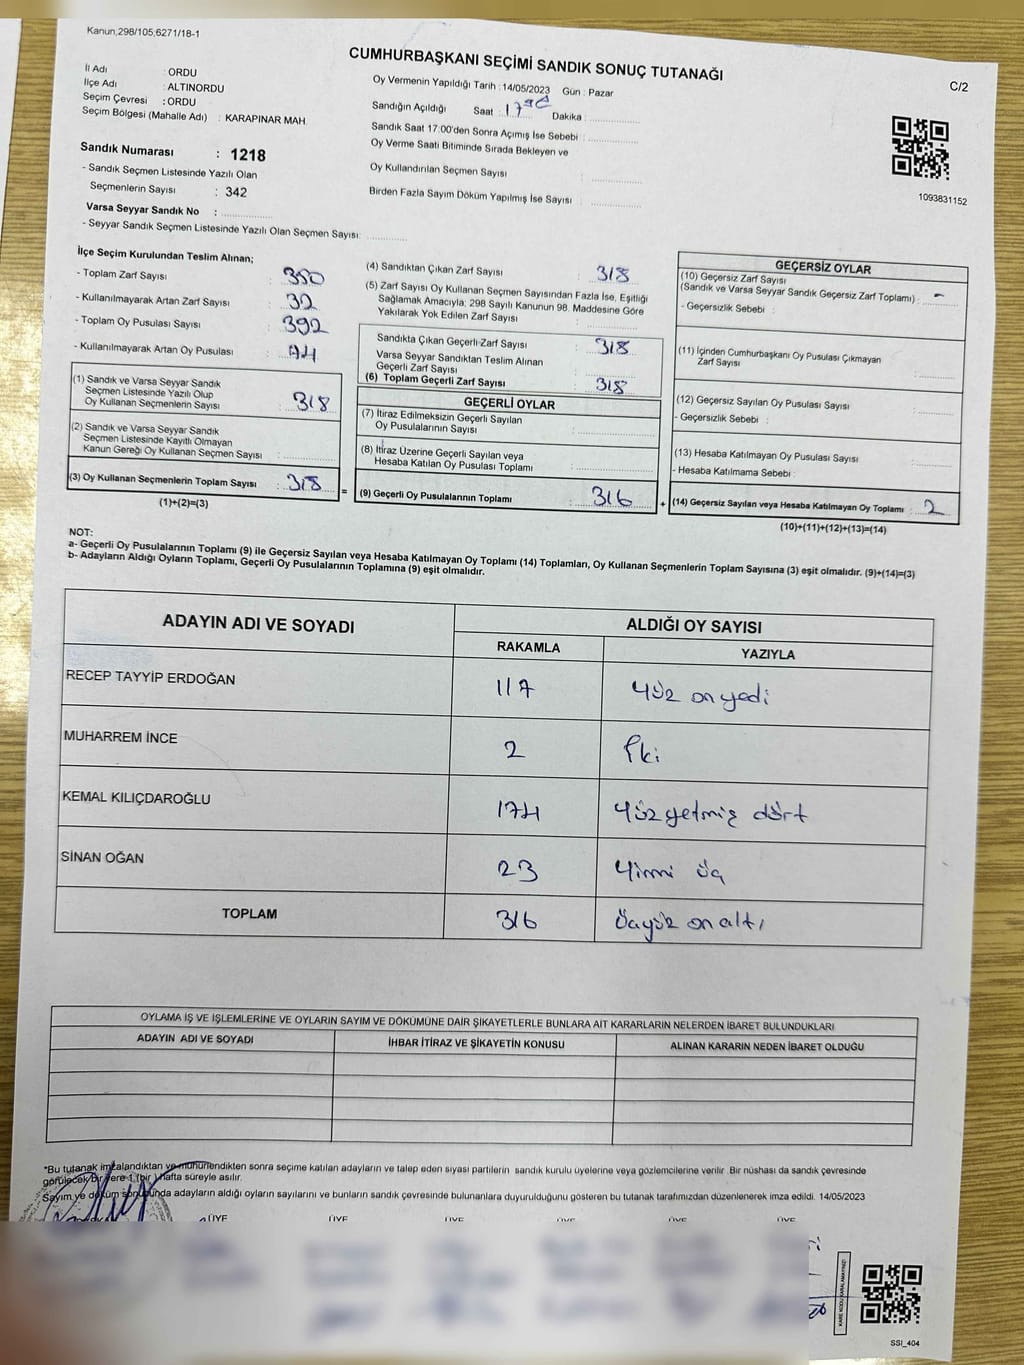 Kanun,298/105,6271/18-1
CUMHURBAŞKANI SEÇİMİ SANDIK SONUÇ TUTANAĞI
C/2
İl Adı : ORDU
İlçe Adı : ALTINORDU
Seçim Çevresi : ORDU
Seçim Bölgesi (Mahalle Adı) : KARAPINAR MAH.
Sandık Numarası : 1218
- Sandık Seçmen Listesinde Yazılı Olan
Seçmenlerin Sayısı : 342
Varsa Seyyar Sandık No :
- Seyyar Sandık Seçmen Listesinde Yazılı Olan Seçmen Sayısı:
Oy Vermenin Yapıldığı Tarih : 14/05/2023 Gün : Pazar
Sandığın Açıldığı Saat : 17 Dakika :
Sandık Saat 17:00'den Sonra Açımış İse Sebebi :
Oy Verme Saati Bitiminde Sırada Bekleyen ve
Oy Kullandırılan Seçmen Sayısı :
Birden Fazla Sayım Döküm Yapılmış İse Sayısı :
1093831152
İlçe Seçim Kurulundan Teslim Alınan;
- Toplam Zarf Sayısı : 350
- Kullanılmayarak Artan Zarf Sayısı : 32
- Toplam Oy Pusulası Sayısı : 392
- Kullanılmayarak Artan Oy Pusulası : 74
(1) Sandık ve Varsa Seyyar Sandık
Seçmen Listesinde Yazılı Olup
Oy Kullanan Seçmenlerin Sayısı : 318
(2) Sandık ve Varsa Seyyar Sandık
Seçmen Listesinde Kayıtlı Olmayan
Kanun Gereği Oy Kullanan Seçmen Sayısı :
(3) Oy Kullanan Seçmenlerin Toplam Sayısı : 318
(1)+(2)=(3)
=
(4) Sandıktan Çıkan Zarf Sayısı : 318
(5) Zarf Sayısı Oy Kullanan Seçmen Sayısından Fazla İse, Eşitliği
Sağlamak Amacıyla; 298 Sayılı Kanunun 98. Maddesine Göre
Yakılarak Yok Edilen Zarf Sayısı :
Sandıkta Çıkan Geçerli Zarf Sayısı : 318
Varsa Seyyar Sandıktan Teslim Alınan
Geçerli Zarf Sayısı :
(6) Toplam Geçerli Zarf Sayısı : 318
GEÇERLİ OYLAR
(7) İtiraz Edilmeksizin Geçerli Sayılan
Oy Pusulalarının Sayısı :
(8) İtiraz Üzerine Geçerli Sayılan veya
Hesaba Katılan Oy Pusulası Toplamı :
(9) Geçerli Oy Pusulalarının Toplamı : 316
+
GEÇERSİZ OYLAR
(10) Geçersiz Zarf Sayısı
(Sandık ve Varsa Seyyar Sandık Geçersiz Zarf Toplamı) : -
- Geçersizlik Sebebi :
(11) İçinden Cumhurbaşkanı Oy Pusulası Çıkmayan
Zarf Sayısı :
(12) Geçersiz Sayılan Oy Pusulası Sayısı :
- Geçersizlik Sebebi :
(13) Hesaba Katılmayan Oy Pusulası Sayısı :
- Hesaba Katılmama Sebebi :
(14) Geçersiz Sayılan veya Hesaba Katılmayan Oy Toplamı : 2
(10)+(11)+(12)+(13)=(14)
NOT:
a- Geçerli Oy Pusulalarının Toplamı (9) ile Geçersiz Sayılan veya Hesaba Katılmayan Oy Toplamı (14) Toplamları, Oy Kullanan Seçmenlerin Toplam Sayısına (3) eşit olmalıdır. (9)+(14)=(3)
b- Adayların Aldığı Oyların Toplamı, Geçerli Oy Pusulalarının Toplamına (9) eşit olmalıdır.
ADAYIN ADI VE SOYADI ALDIĞI OY SAYISI
RAKAMLA YAZIYLA
RECEP TAYYİP ERDOĞAN 117 Yüz on yedi
MUHARREM İNCE 2 İki
KEMAL KILIÇDAROĞLU 174 Yüz yetmiş dört
SİNAN OĞAN 23 Yirmi üç
TOPLAM 316 Üçyüz on altı
OYLAMA İŞ VE İŞLEMLERİNE VE OYLARIN SAYIM VE DÖKÜMÜNE DAİR ŞİKAYETLERLE BUNLARA AİT KARARLARIN NELERDEN İBARET BULUNDUKLARI
ADAYIN ADI VE SOYADI İHBAR İTİRAZ VE ŞİKAYETİN KONUSU ALINAN KARARIN NEDEN İBARET OLDUĞU
*Bu tutanak imzalandıktan ve mühürlendikten sonra seçime katılan adayların ve talep eden siyasi partilerin sandık kurulu üyelerine veya gözlemcilerine verilir. Bir nüshası da sandık çevresinde
görülecek bir yere 1 (bir) hafta süreyle asılır.
Sayım ve döküm sonucunda adayların aldığı oyların sayılarını ve bunların sandık çevresinde bulunanlara duyurulduğunu gösteren bu tutanak tarafımızdan düzenlenerek imza edildi. 14/05/2023
ÜYE ÜYE ÜYE ÜYE ÜYE ÜYE
KARE KODU KARALAMAYINIZ!
SSI_404